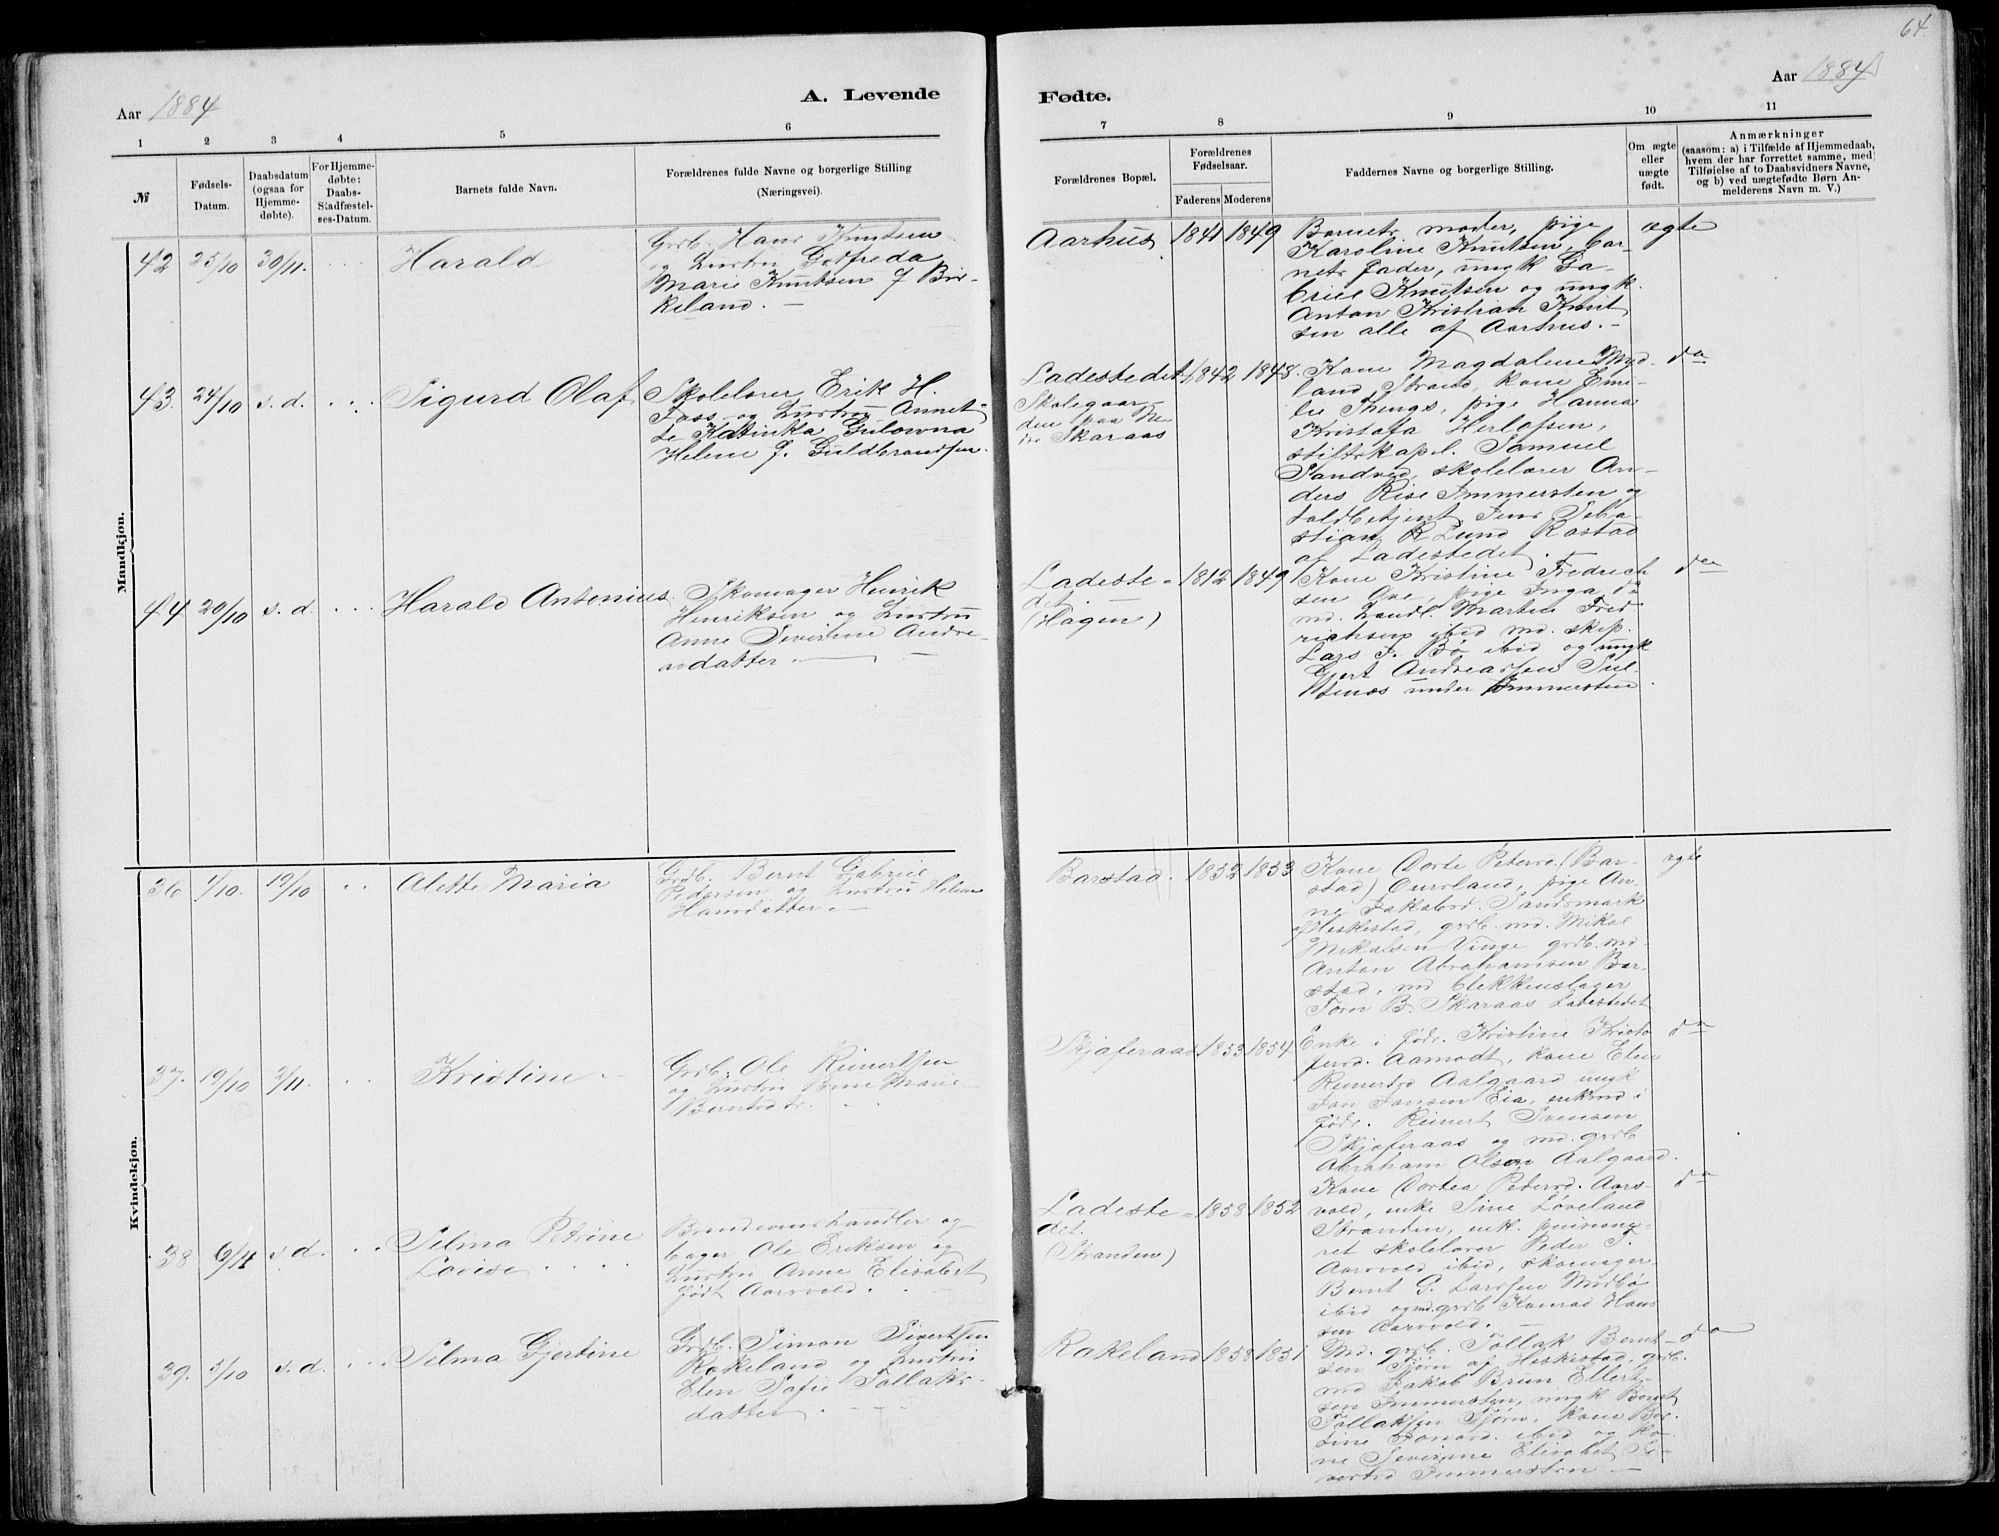 64.
Aar 1884
A. Levende
Fødte.
Aar 1884
1 2 3 4 5 6 7 8 9 10 11
№
Fødsels-
Datum.
Daabsdatum
(ogsaa for
Hjemme-
døbte).
For Hjemme-
døbte:
Daabs-
Stadfæstel-
ses-Datum.
Barnets fulde Navn.
Forældrenes fulde Navne og borgerlige Stilling
(Næringsvei).
Forældrenes Bopæl.
Forældrenes
Fødselsaar.
Faderens Moderens
Faddernes Navne og borgerlige Stilling.
Om ægte
eller
uægte
født.
Anmærkninger
(saasom: a) i Tilfælde af Hjemmedaab,
hvem der har forrettet samme, med
Tilføielse af to Daabsvidners Navne,
og b) ved uægtefødte Børn An-
melderens Navn m. V.)
Mandkjøn.
42 25/10 30/11. Harald
Grdb. Hans Knutsen
og hustru Gotfreda
Marie Knutsen f Bir-
keland. —
Aarhus 1841 1849
Barnets moder, pige
Karoline Knutsen, bar-
nets fader, ungk Ga-
briel Knutsen og ungk.
Anton Kristian Knut
sen alle af Aarhus. —
ægte
43. 24/10 s. d. Sigurd Olaf
Skolelærer Erik H.
Foss og hustru Annet-
te Katinka Gulowna
Helene f. Guldbrandsen.
Ladestedet 1842 1848.
Skolegaar-
den paa Ne
dre Skaraas
Kone Magdalene Myd-
land Strand, kone Emi-
lie Thengs, pige Hanna
Kristofa Herlofsen,
stiftskapel. Samuel
Sandved, skolelærer An-
ders Rise Immersten og
toldbetjent Jens Seba-
stian R Lund Rostad
af Ladestedet.
da
44 20/10 s. d. Harald Antonius
Skomager Henrik
Henriksen og hustru
Anne Severine Andre-
asdatter. —
Ladeste- 1812 1849
det.
(Hagen)
Kone Kristine Fredrich
sen Ove, pige Inga do
md. Landl. Marten Fred
richsen ibid md. skip.
Lars F. Bø ibid og ungk
Gjert Andreassen
under Immersten.
da
Kvindekjøn.
36 1/10. 19/10 Alette Maria
Grdb. Bernt Gabriel
Pedersen og hustru Helene
Hansdatter. —
Barstad. 1852 1853
Kone Dorte Petersd. (Bar-
stad) Oursland, pige An-
ne Jakobsd. Sandsmark
af Heskestad, grdb. md. Mikal
Mikalsen Vinge grdb. md.
Anton Abrahamsen Bar-
stad, md blekkenslager
Tørn B. Skaraas Ladestedet
ægte
37. 19/10 2/11. Kristine —
Grdb. Ole Reinertsen
og hustru Bine Marie
Berntsdtr.
Skjøferaas 1853 1854
Enke i føde. Kristine Kristo
fersd. Aamodt, kone Elen
Reinertsd Aalgaard ungk
Jan Jansen Eia, enkmd i
føde. Reinert Svensen
Skjøferaas og md. grdb
Abraham Olsen Aalgaard.
da
38 6/11 s. d. Selma Petrine
Lovise
Brændevinshandler og
bager Ole Eriksen og
hustru Anne Elisabet
født Aarsvold.
Ladeste- 1858 1852
det.
(Stranden)
Kone Dortea Petersd. Aars-
vold, enke Sine Løveland
Stranden, enk. pensione-
ret skolelærer Peder T.
Aarsvold ibid, skomager
Bernt G. Larssen Midbø
ibid og md. grdb Konrad Hans
sen Aarsvold. —
da
39. 5/10 s. d. Selma Gjertine
Grdb. Simon Sivertsen
Rakeland og hustru
Elen Sofie Tollaks-
datter.
Rakeland 1858 1851
Md. grdb. Tollak Bernt-
sen Fjørn af Heskestad, grdb.
md Jakob Brun Ellert-
sen Immersten, ungk Bernt
Tollaksen Fjørn, kone Ber-
tine ibid og ko-
ne Severine Elisabet Si-
vertsd Immersten —
da